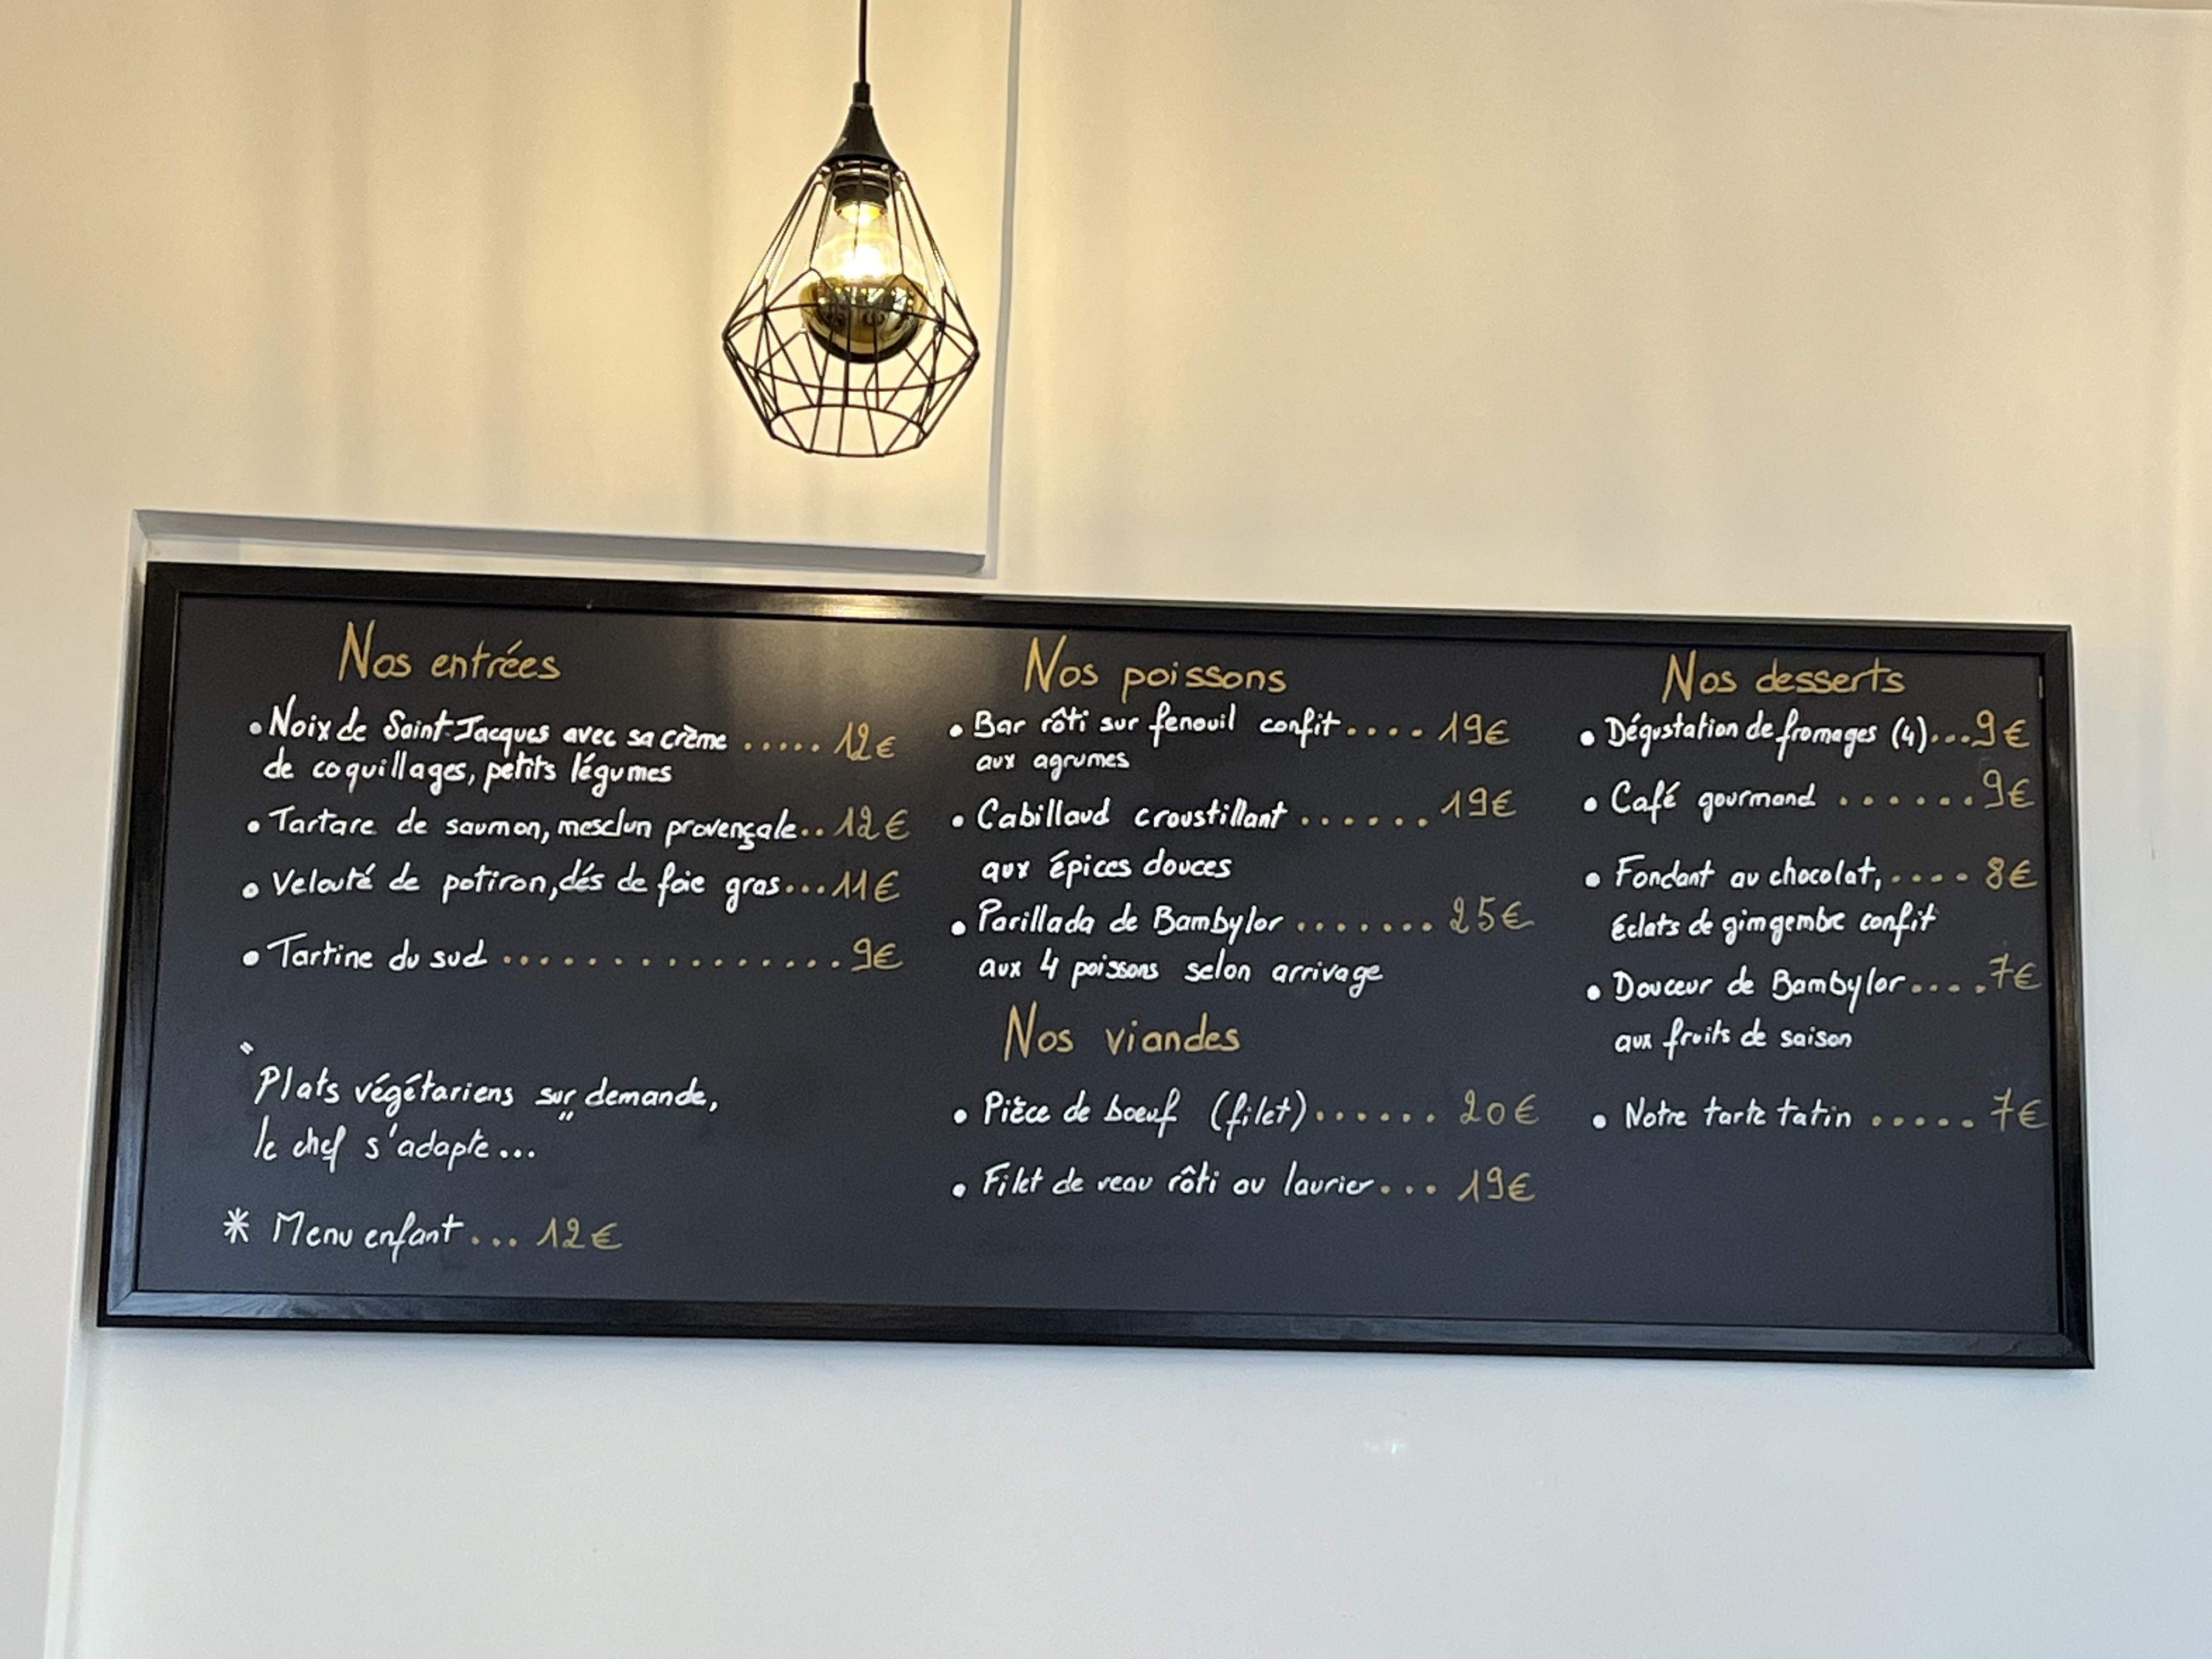 Nos entrées
• Noix de Saint-Jacques avec sa crème ..... 12€
de coquillages, petits légumes
• Tartare de saumon, mesclun provençale.. 12€
• Velouté de potiron, dés de foie gras... 11€
• Tartine du sud ............... 9€
"Plats végétariens sur demande,
le chef s'adapte..."
* Menu enfant ... 12€
Nos poissons
• Bar rôti sur fenouil confit.... 19€
aux agrumes
• Cabillaud croustillant ...... 19€
aux épices douces
• Parillada de Bambylor ....... 25€
aux 4 poissons selon arrivage
Nos viandes
• Pièce de boeuf (filet)...... 20€
• Filet de veau rôti au laurier... 19€
Nos desserts
• Dégustation de fromages (4)...9€
• Café gourmand ......9€
• Fondant au chocolat, .... 8€
éclats de gimgembre confit
• Douceur de Bambylor....7€
aux fruits de saison
• Notre tarte tatin ..... 7€